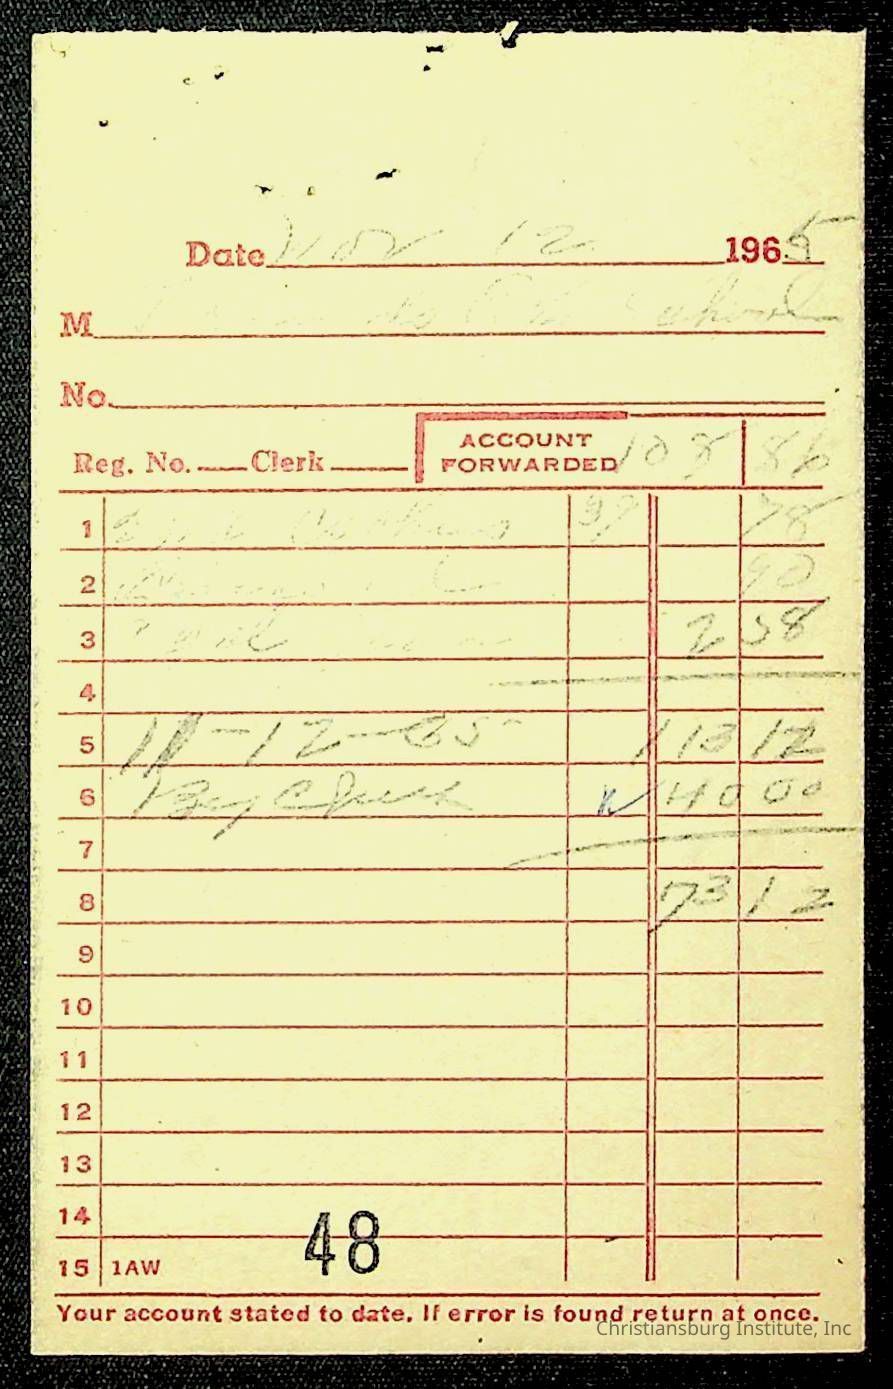 Date Nov 12 1965
M School
No.
Reg. No. Clerk
ACCOUNT FORWARDED 108 86
1 39 78
2 90
3 2 58
4
5 11-12-65 113 12
6 By Check 40 00
7
8 73 12
9
10
11
12
13
14
15 1AW
48
Your account stated to date. If error is found return at once.
Christiansburg Institute, Inc